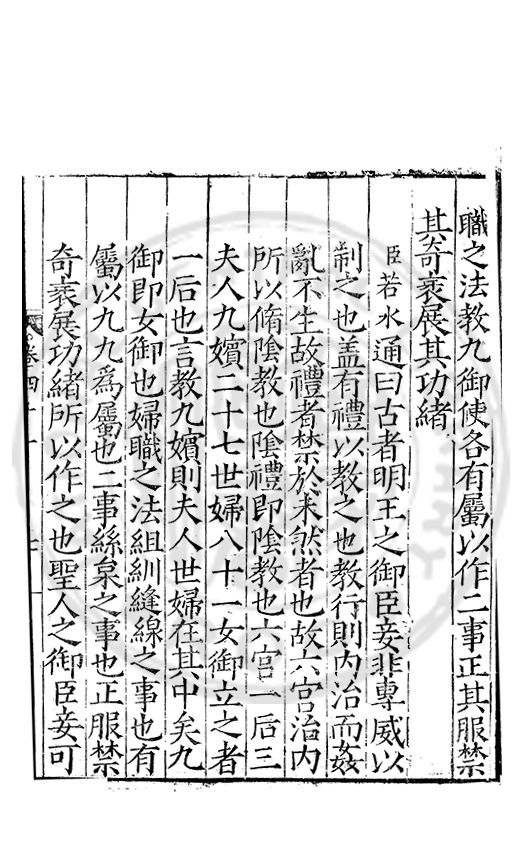 職之法教九御使各有屬以作二事正其服禁
其奇衺展其功緒
臣若水通曰古者明王之御臣妾非專威以
制之也盖有禮以教之也教行則内治而姦
亂不生故禮者禁於未然者也故六宫治内
所以脩陰教也陰禮即陰教也六宫一后三
夫人九嬪二十七世婦八十一女御立之者
一后也言教九嬪則夫人世婦在其中矣九
御即女御也婦職之法組紃縫線之事也有
屬以九九爲屬也二事絲枲之事也正服禁
奇衺展功緒所以作之也聖人之御臣妾可
卷四十